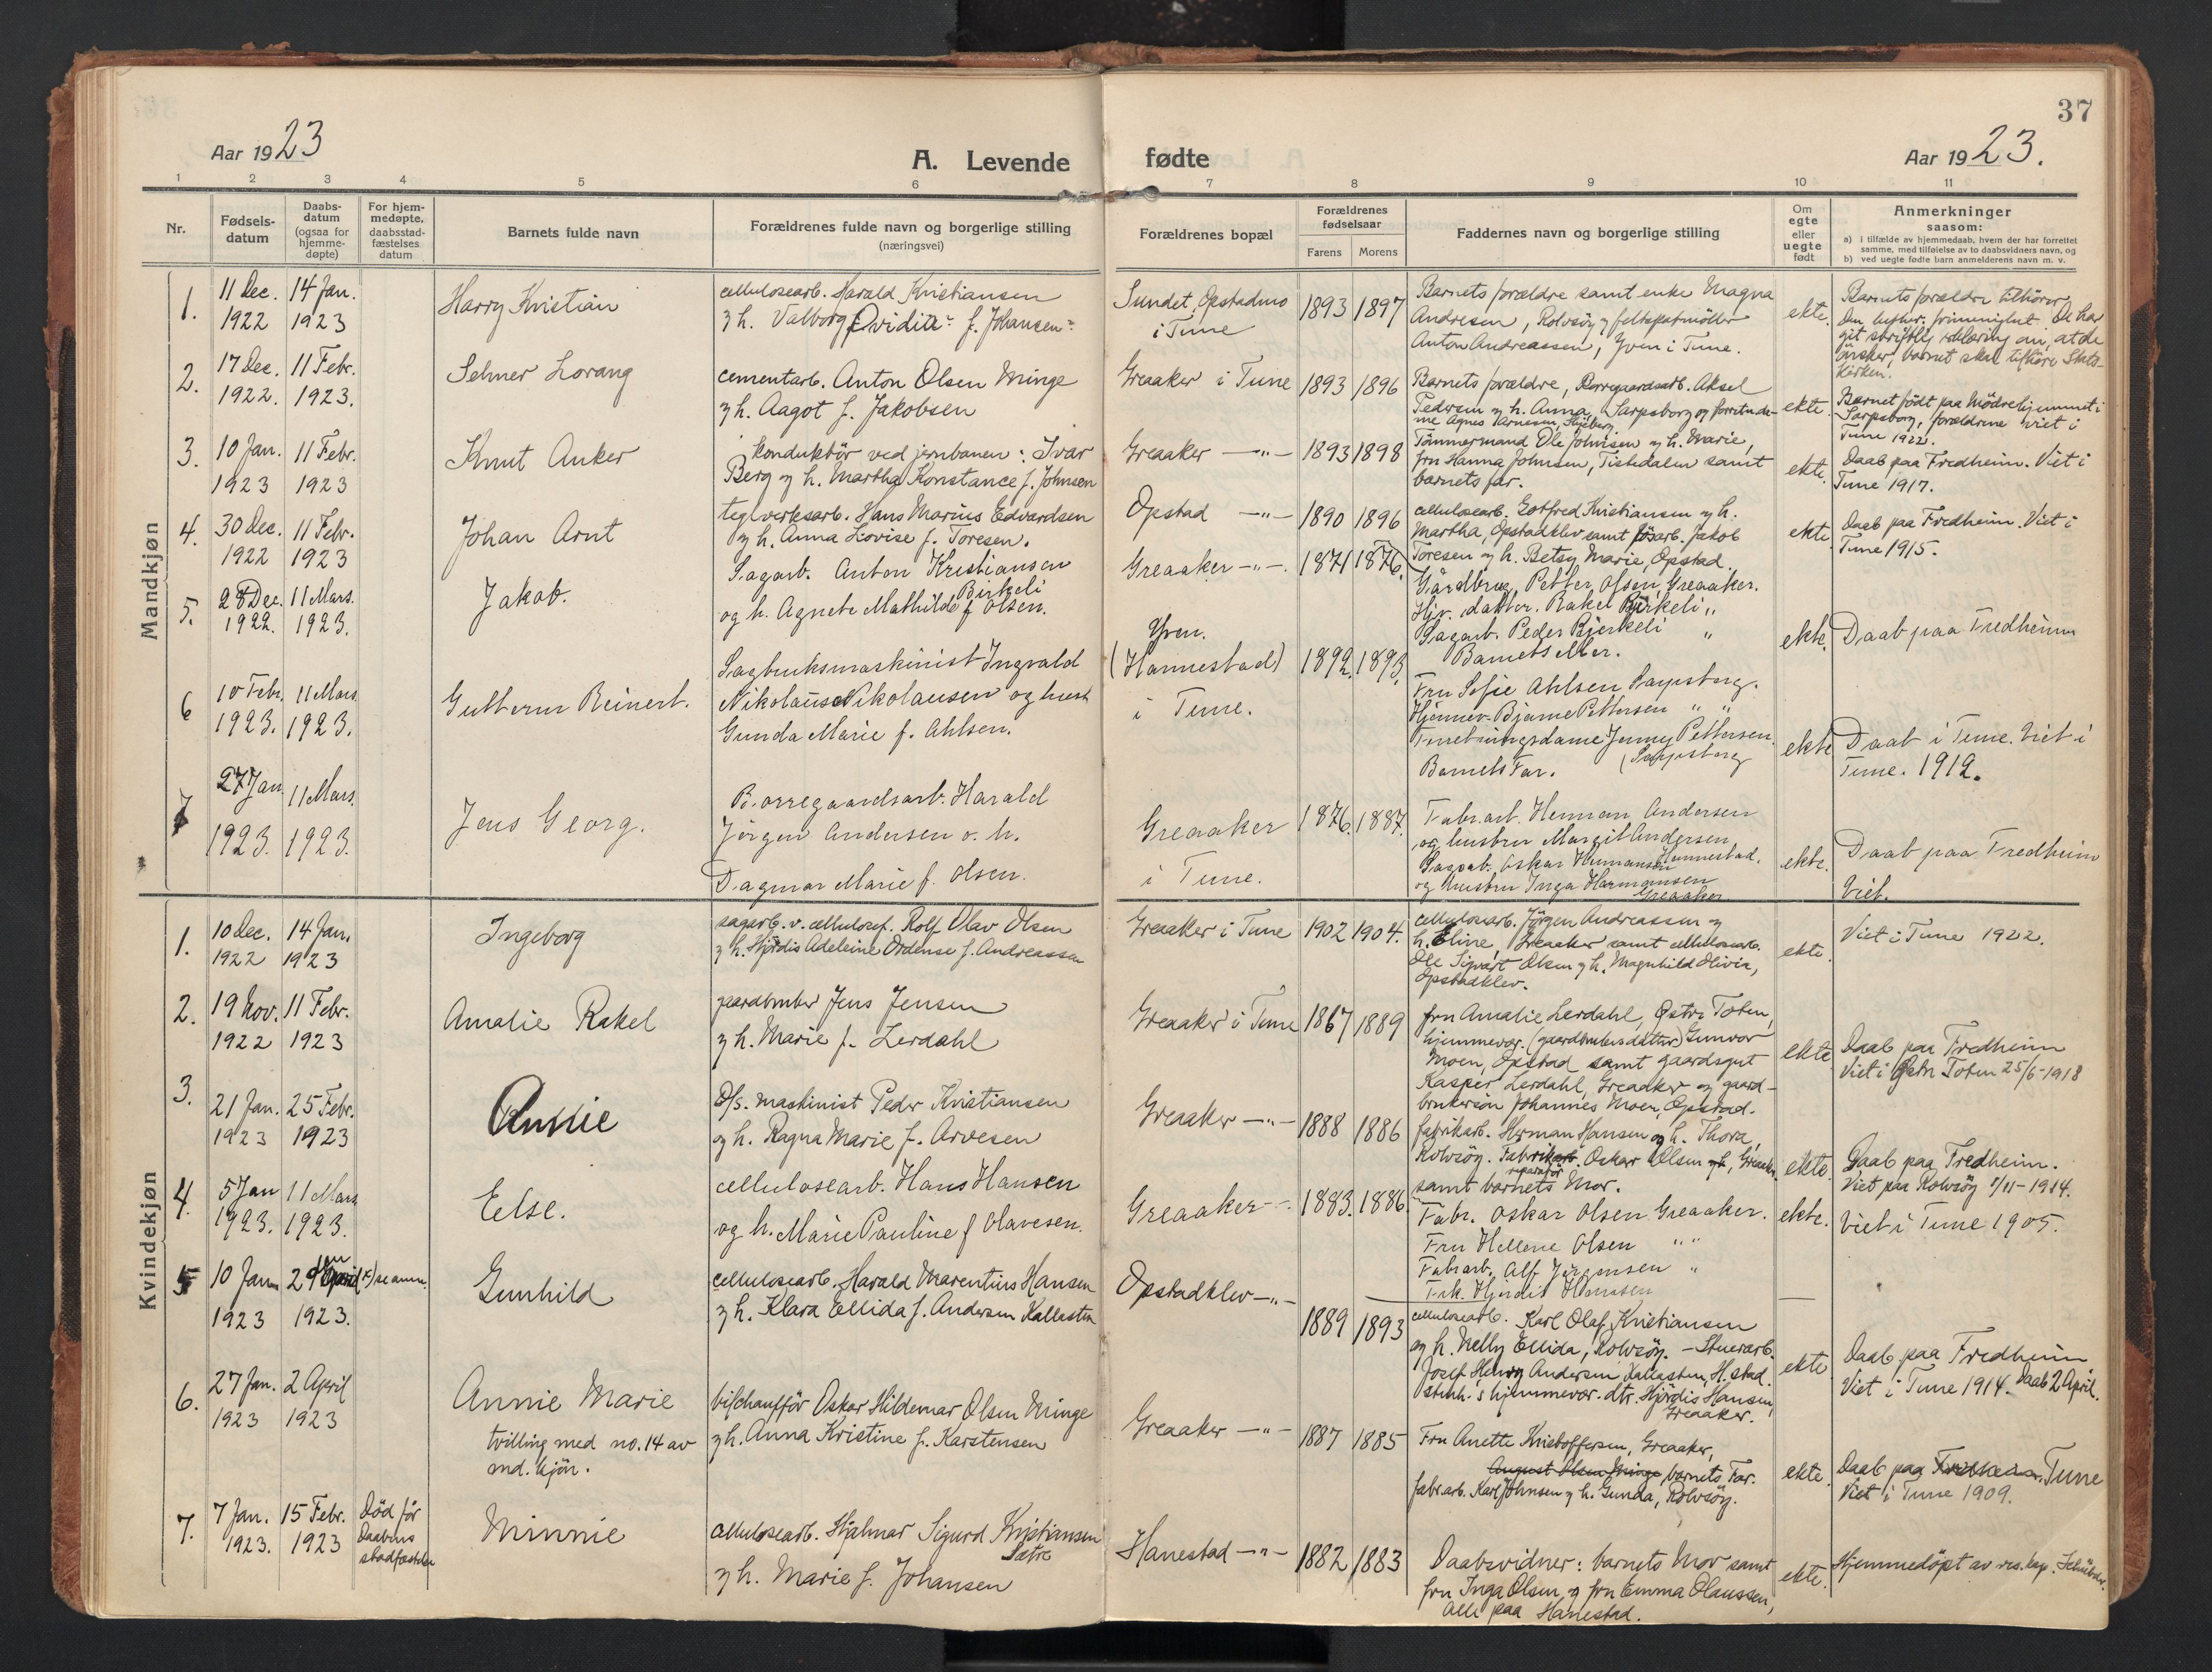 37
Aar 1923
A. Levende
fødte
Aar 1923.
1 2 3 4 5 6 7 8 9 10 11
Nr.
Fødsels-
datum
Daabs-
datum
(ogsaa for
hjemme-
døpte)
For hjem-
medøpte,
daabsstad-
fæstelses
datum
Barnets fulde navn
Forældrenes fulde navn og borgerlige stilling
(næringsvei)
Forældrenes bopæl
Forældrenes
fødselsaar
Farens Morens
Faddernes navn og borgerlige stilling
Om
egte
eller
uegte
født
Anmerkninger
saasom:
a) i tilfælde av hjemmedaab, hvem der har forrettet
samme, med tilføielse av to daabsvidners navn, og
b) ved uegte fødte barn anmelderens navn m. v.
Mandkjøn
1.
11 Dec.
1922
14 Jan.
1923
Harry Kristian
cellulosearb. Harald Kristiansen
og h. Valborg Ovidia f. Johansen
Sundet, Opstadmo
i Tune
1893 1897
Barnets forældre samt enke Magna
Andresen, Rolvsöy og
Anton Andreassen, Yven i Tune.
ekte.
Barnets forældre tilhører
den luther. frimenighet. De har
git skriftlig erklæring om, at de
ønsker, barnet skal tilhøre Stats-
kirken.
2.
17 Dec.
1922.
11 Febr.
1923.
Selmer Lorang
cementarb. Anton Olsen Minge
og h. Aagot f. Jakobsen
Greaaker i Tune
1893 1896
Barnets forældre, Borregaardsarb. Aksel
Pedersen og h. Anna, Sarpsborg og
Agnes
ekte.
Barnet født paa Mødrehjemmet i
Sarpsborg, forældrene viet i
Tune 1922.
3.
10 Jan.
1923
11 Febr.
1923
Knut Anker
Konduktör ved jernbanen: Ivar
Berg og h. Martha Konstance f. Johnsen
Greaaker —"—
1893 1898
Tömmermand Ole Johnsen og h. Marie,
fru Hanna Johnsen, Tistedalen samt
barnets far.
ekte.
Daab paa Fredheim. Viet i
Tune 1917.
4.
30 Dec.
1922
11 Febr.
1923
Johan Arnt
teglverksarb. Hans Marius Edvardsen
og h. Anna Lovise f. Toresen.
Opstad —"—
1890 1896
cellulosearb. Gotfred Kristiansen og h.
Martha, Opstadklev samt arb. Jakob
Toresen og h. Betsy Marie, Opstad.
ekte.
Daab paa Fredheim. Viet i
Tune 1915.
5.
28 Dec.
1922.
11 Mars.
1923.
Jakob.
Sagarb. Anton Kristiansen
Birkeli
og h. Agnete Mathilde f Olsen.
Greaaker —"—
1871 1876.
Gårdbrug. Petter Olsen, Greaaker.
Hjv. datter. Rakel Bjerkeli "
Sagarb. Peder Bjerkeli "
Barnets Mor.
ekte.
Daab paa Fredheim
6
10 Febr.
1923.
11 Mars.
1923.
Guttorm Reinert.
Sagbruksmaskinist Ingvald
Nikolaus Nikolausen og hust
Gunda Marie f. Ahlsen.
Yven.
(Hannestad)
i Tune.
1892. 1893.
Fru Sofie Ahlsen Sarpsborg.
Hjemmev. Bjarne Pettersen " "
Forretningsdame Jenny Pettersen.
Barnets Far. (Sarpsborg
ekte
Daab i Tune. Viet i
Tune. 1912.
7
27 Jan.
1923.
11 Mars.
1923.
Jens Georg.
Borregaardsarb. Harald
Jørgen Andersen o. h.
Dagmar Marie f. Olsen.
Greaaker
i Tune.
1876. 1887.
Fabr. arb. Herman Andersen
og hustru Margit Andersen
Hannestad.
Sagarb. Oskar Hermansen
og hustru Inga Hermansen
Greaaker
ekte.
Daab paa Fredheim
Viet.
Kvindekjøn
1.
10 Dec.
1922
14 Jan.
1923
Ingeborg
sagarb. v. cellulosef. Rolf Olav Olsen
og h. Hjørdis Adeleine Ordense f. Andreassen
Greaaker i Tune
1902 1904.
cellulosearb. Jörgen Andreassen og
h. Oline, Greaaker samt cellulosearb.
Ole Sigvart Olsen og h. Magnhild Olivia,
Opstadklev.
ekte.
Viet i Tune 1922.
2.
19 Nov.
1922
11 Febr.
1923
Amalie Rakel
gaardbruker Jens Jensen
og h. Marie f. Lerdahl
Greaaker i Tune
1867 1889
fru Amalie Lerdahl, Østre Toten,
hjemmevær. (gaardbrukersdatter) Gunvor
Moen, Opstad samt gaardsgut
Kasper Lerdahl, Greaaker og gaard-
brukersön Johannes Moen, Opstad.
ekte
Daab paa Fredheim
Viet i Østre Toten 25/6-1918
3.
21 Jan.
1923
25 Febr.
1923
Annie
D/s. maskinist Peder Kristiansen
og h. Ragna Marie f. Arvesen
Greaaker —"—
1888 1886
fabrikarb. Herman Hansen og h. Thora,
Rolvsöy. Fabrikarb. Oskar Olsen og h, Greaaker
reparatör
samt barnets Mor.
ekte.
Daab paa Fredheim.
Viet paa Rolvsöy 1/11-1914.
4.
5 Jan
1923.
11 Mars
1923.
Else.
cellulosearb. Hans Hansen
og h. Marie Pauline f Olavesen.
Greaaker —"—
1883. 1886.
Fabr. Oskar Olsen Greaaker.
Fru Hellene Olsen " "
Fabr. arb. Alf Jörgensen "
Frk. Hjördis Hansen
ekte.
Viet i Tune 1905.
5
10 Jan
1923
2 April
1923.
x) se anm.
Gunhild
cellulosearb. Harald Marentius Hansen
og h. Klara Ellida f. Andersen Kallasten
Opstadklev —"—
1889 1893
cellulosearb. Karl Olaf Kristiansen
og h. Nelly Ellida, Rolvsöy. — Stuerarb.
Josef Henry Andersen Kallasten, H.stad.
hjemmevær. dtr. Hjördis Hansen,
Greaaker.
ekte
Daab paa Fredheim
Viet i Tune 1914. Daab 2 April.
6.
27 Jan.
1923
2 April
1923
Annie Marie
tvilling med no. 14 av
md. kjön.
bilchaufför Oskar Hildemar Olsen Minge
og h. Anna Kristine f. Karstensen
Greaaker —"—
1887 1885
Fru Anette Kristoffersen, Greaaker,
August Olsen Minge, barnets Far.
fabr.arb. Karl Johnsen og h. Gunda, Rolvsöy.
ekte.
Daab paa Fredheim. Tune
Viet i Tune 1909.
7.
7 Jan.
1923.
15 Febr.
1923
Död för
daabens
stadfæstelse
Minnie
cellulosearb. Hjalmar Sigurd Kristiansen
Sætre
og h. Marie f. Johansen
Hanestad —"—
1882 1883
Daabsvidner: barnets Mor samt
fru Inga Olsen og fru Emma Olaussen,
alle paa Hanestad.
ekte.
Hjemmedöpt av res. kap.